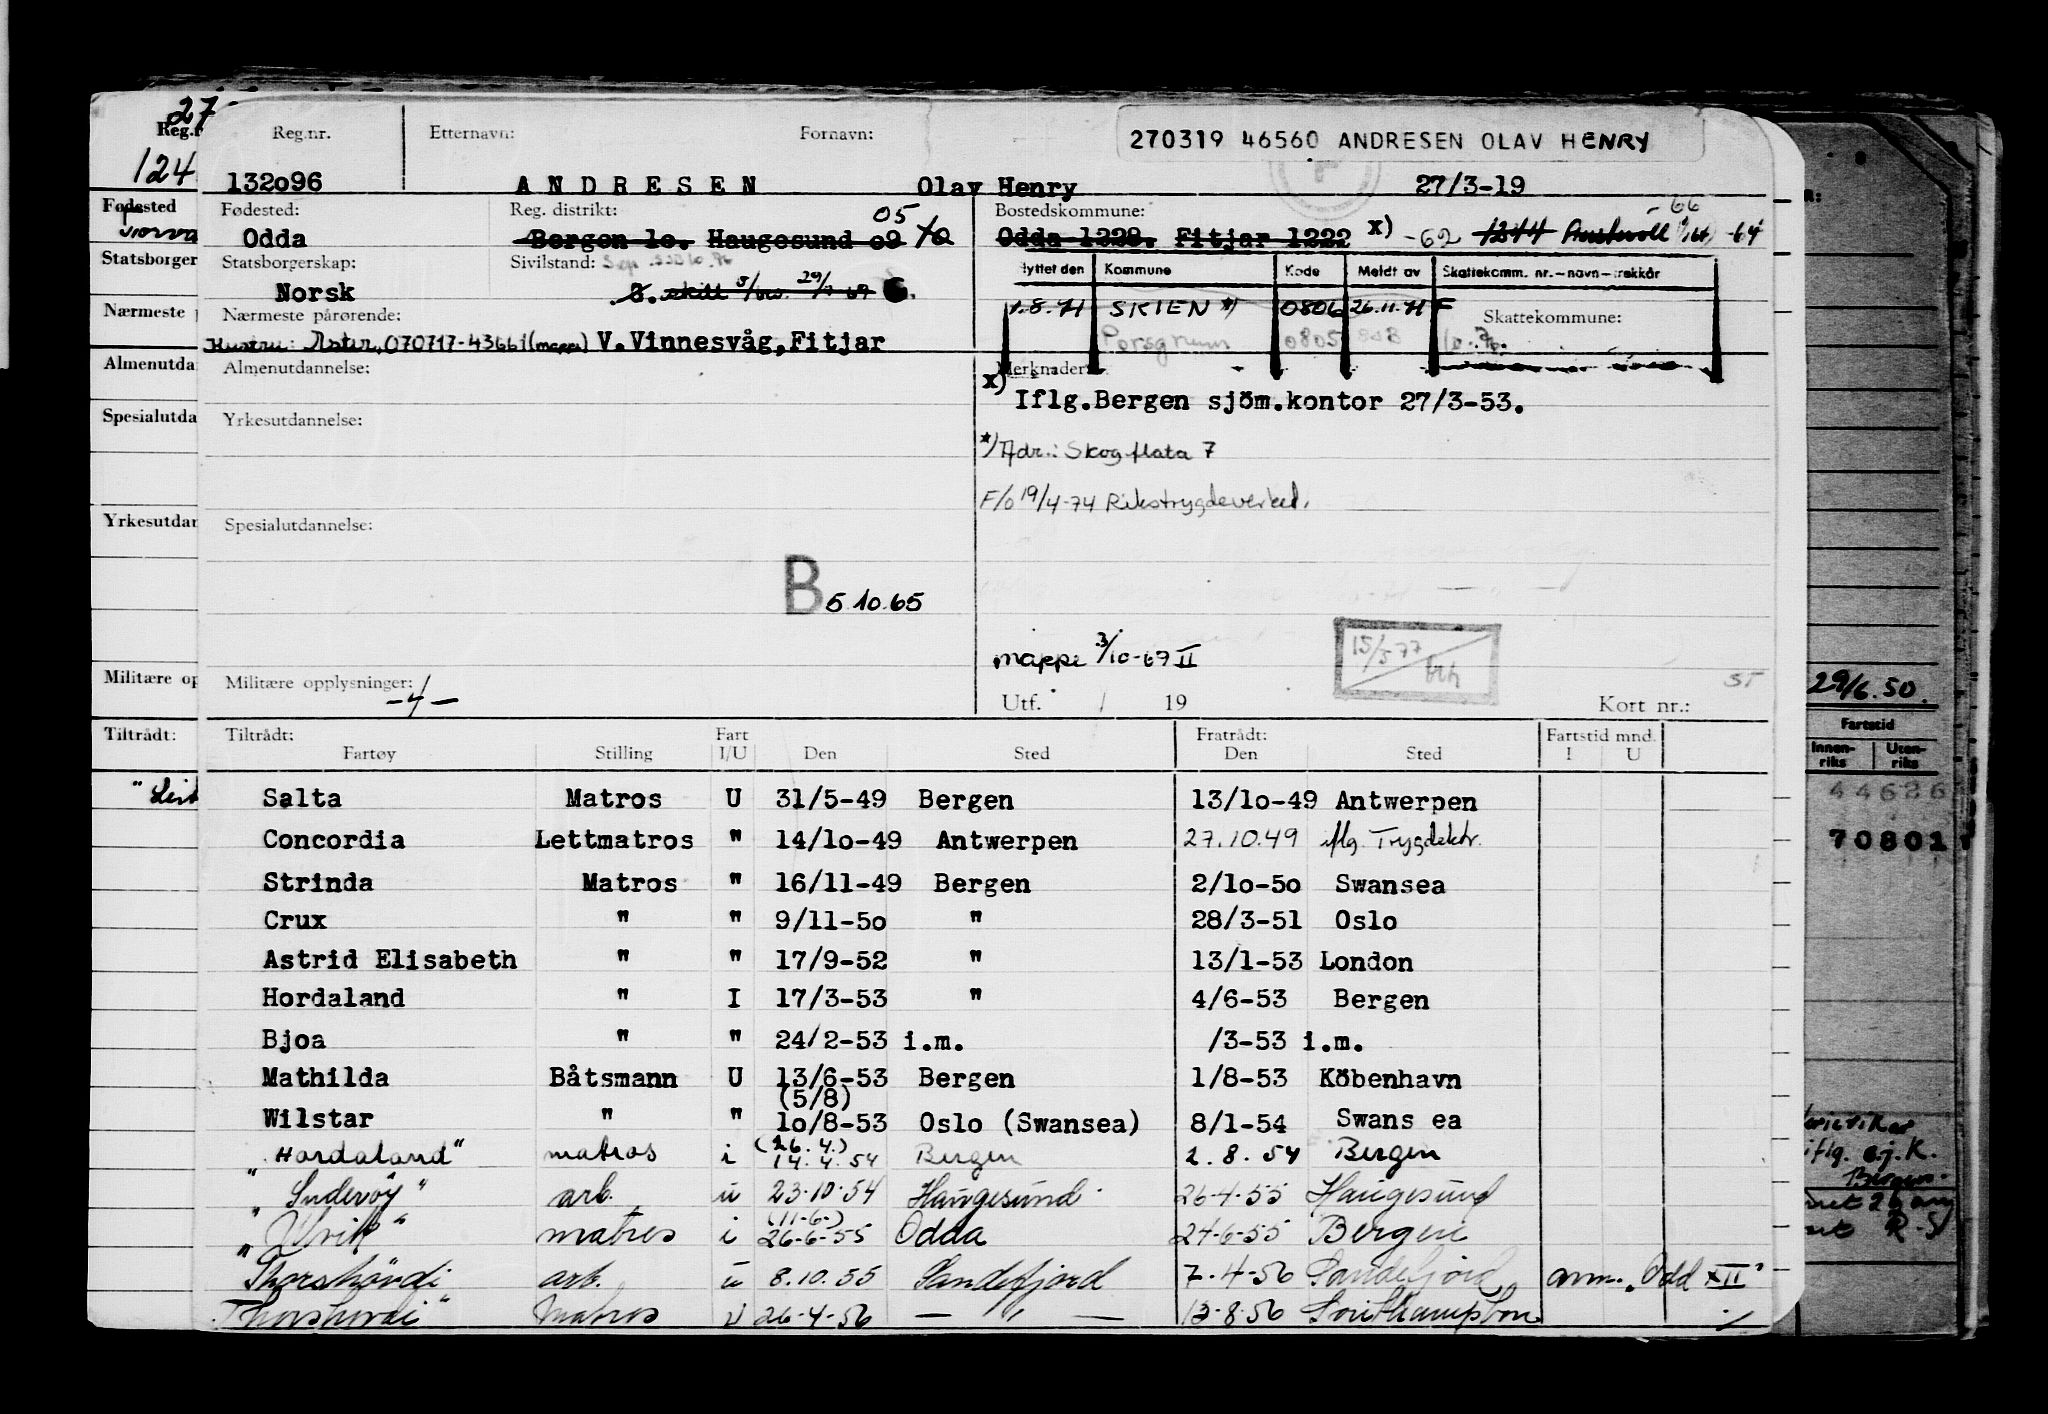 27
Reg.nr. Etternavn: Fornavn: 270319 46560 ANDRESEN OLAV HENRY
124
132o96 A N D R E S E N Olav Henry 27/3-19
Fødested Fødested: Reg. distrikt: 05 Bostedskommune: 66
Odda Bergen 1o. Haugesund o9 Odda 1228. Fitjar 1222 x) -62 1244 -64
Statsborger Statsborgerskap: Sivilstand: Flyttet den Kommune Kode Meldt av Skattekomm. nr.-navn-trekkår
Norsk skilt
1.8.71 SKIEN *) 0806 26.11.71 F
Nærmeste Nærmeste pårørende: Skattekommune:
Hustru: Aster, 070717-43661 (mappe) V.Vinnesvåg,Fitjar Porsgrunn 0805
Almenutda Almenutdannelse: Merknader:
x) Iflg.Bergen sjöm.kontor 27/3-53.
Spesialutda Yrkesutdannelse:
*) Adr.: Skogflata 7
F/o 19/4-74 Rikstrygdeverket.
Yrkesutdan Spesialutdannelse:
B 5.10.65
mappe 3/10-69 II 15/5 77
Militære op Militære opplysninger: Utf. / 19 Kort nr.: ST
29/6.50.
Tiltrådt: Tiltrådt: Fart Fratrådt: Fartstid mnd. Fartstid
Fartøy Stilling I/U Den Sted Den Sted I U Innen-riks Uten-riks
Salta Matros U 31/5-49 Bergen 13/1o-49 Antwerpen 44626
Concordia Lettmatros " 14/1o-49 Antwerpen 27.10.49 iflg. Trygdektr. 70801
Strinda Matros " 16/11-49 Bergen 2/1o-5o Swansea
Crux " " 9/11-5o " 28/3-51 Oslo
Astrid Elisabeth " " 17/9-52 " 13/1-53 London
Hordaland " I 17/3-53 " 4/6-53 Bergen
Bjoa " " 24/2-53 i.m. /3-53 i.m.
Mathilda Båtsmann U 13/6-53 Bergen 1/8-53 Köbenhavn
(5/8)
Wilstar " " 1o/8-53 Oslo (Swansea) 8/1-54 Swans ea
(26.4.)
"Hordaland" matros i 14.4.54 Bergen 2.8.54 Bergen
"Suderöy" arb. u 23.10.54 Haugesund 26-4-55 Haugesund
(11-6-)
"Ulvik" matros i 26-6-55 Odda 24-6-55 Bergen
Thorshövdi arb. u 8.10.55 Sandefjord 7.4-56 Sandefjord anm. "Odd XII"
Thorshovdi" Matros u 26-4-56 — " — 13-8-56 Southampton